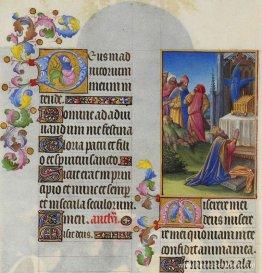 Deus in ad
iutorium
meum in
tende.
Domine ad adiu
uandum me festina
Gloria patri et fili
o et spiritui sancto.
Sicut erat in prin
cipio et nunc et semp
et in secula seculorum
Amen.
Miserere mei
deus misere
re mei quoniam in te
confidit anima mea.
Et in umbra ala